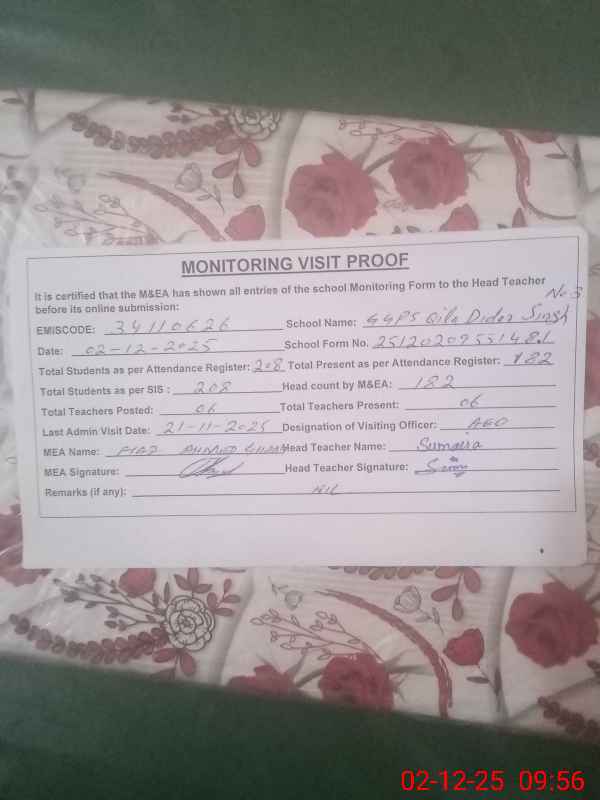 MONITORING VISIT PROOF
It is certified that the M&EA has shown all entries of the school Monitoring Form to the Head Teacher
before its online submission:
No 3
EMISCODE: 34110626 School Name: GGPS Qila Didar Singh
Date: 02-12-2025 School Form No. 2512020955148
Total Students as per Attendance Register: 208 Total Present as per Attendance Register: 182
Total Students as per SIS : 208 Head count by M&EA: 182
Total Teachers Posted: 06 Total Teachers Present: 06
Last Admin Visit Date: 21-11-2025 Designation of Visiting Officer: AEO
MEA Name: AHMED Head Teacher Name: Sumaira
MEA Signature: Head Teacher Signature:
Remarks (if any): NIL
02-12-25 09:56